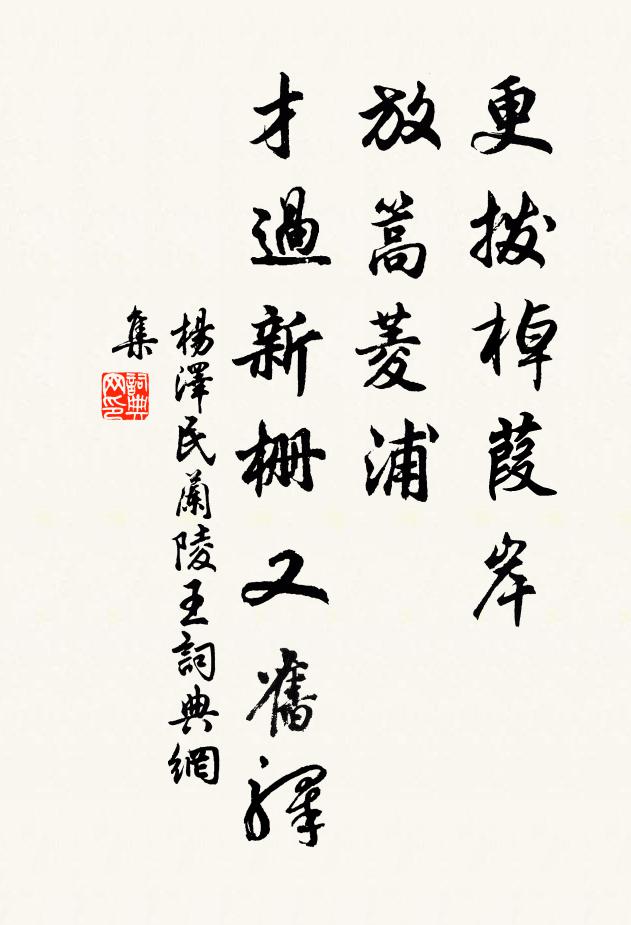 更撥棹葭岸
放篙菱浦
才過新柵又舊驛
楊澤民蘭陵王詞典網
集
詞典
网印